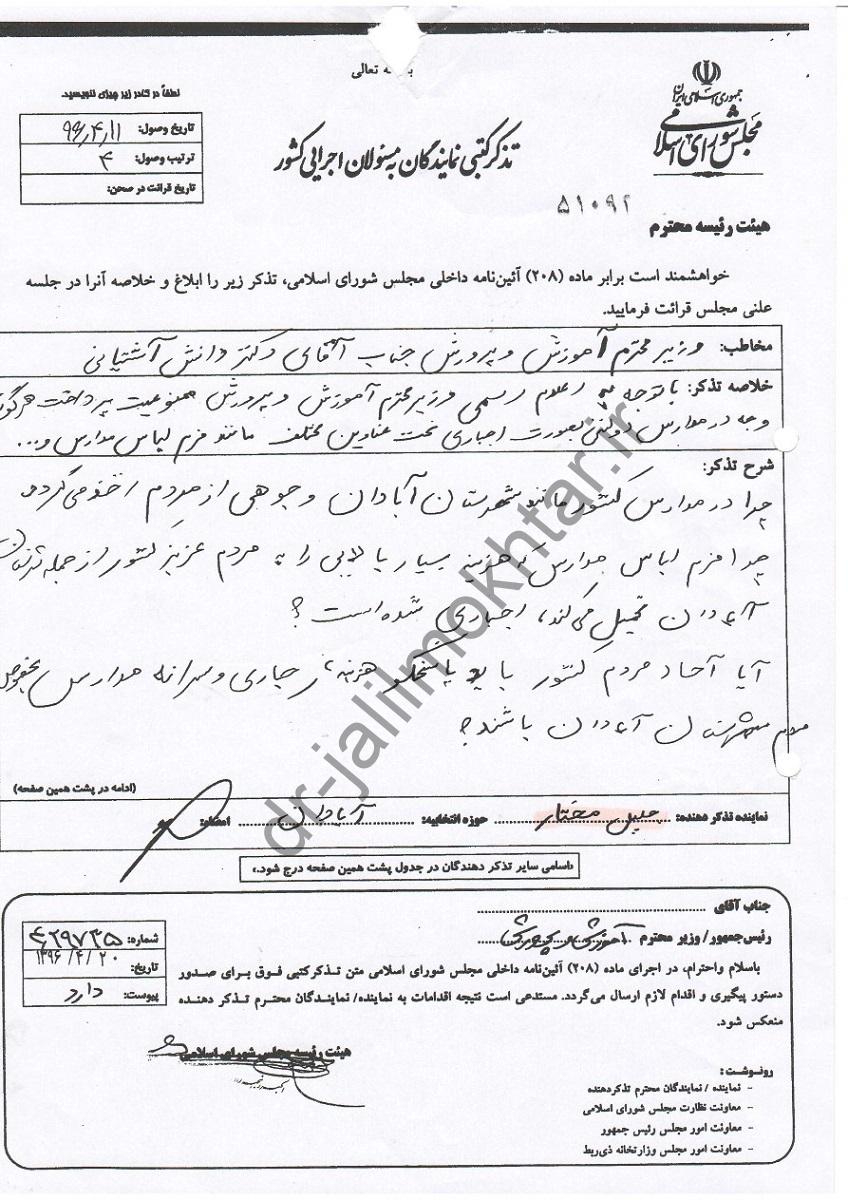 باسمه تعالی
جمهوری اسلامی ایران
مجلس شورای اسلامی
لطفاً در کادر زیر چیزی ننویسید.
تاریخ وصول: ۹۶/۴/۱۱
ترتیب وصول: ۴
تاریخ قرائت در صحن:
تذکر کتبی نمایندگان به مسئولان اجرایی کشور
۵۱۰۹۲
هیئت رئیسه محترم
خواهشمند است برابر ماده (۲۰۸) آئین‌نامه داخلی مجلس شورای اسلامی، تذکر زیر را ابلاغ و خلاصه آنرا در جلسه
علنی مجلس قرائت فرمایید.
مخاطب: وزیر محترم آموزش و پرورش جناب آقای دکتر دانش آشتیانی
خلاصه تذکر: با توجه به اعلام رسمی وزیر محترم آموزش و پرورش ممنوعیت پرداخت هرگونه
وجه در مدارس دولتی بصورت اجباری تحت عناوین مختلف مانند فرم لباس مدارس و...
شرح تذکر:
چرا در مدارس کشور مانند شهرستان آبادان وجوهی از مردم اخذ می گردد
چرا فرم لباس مدارس که هزینه بسیار بالایی را به مردم عزیز کشور از جمله شهرستان
آبادان تحمیل می کند، اجباری شده است؟
آیا آحاد مردم کشور باید پاسخگو هزینه های جاری و سرانه مدارس بخصوص
مردم شهرستان آبادان باشند؟
(ادامه در پشت همین صفحه)
نماینده تذکر دهنده: جلیل مختار حوزه انتخابیه: آبادان امضاء:
«اسامی سایر تذکر دهندگان در جدول پشت همین صفحه درج شود.»
جناب آقای
رئیس‌جمهور/ وزیر محترم آموزش و پرورش
شماره: ۴۲۹۷۳۵
تاریخ: ۱۳۹۶/۴/۲۰
پیوست: دارد
باسلام واحترام، در اجرای ماده (۲۰۸) آئین‌نامه داخلی مجلس شورای اسلامی متن تذکرکتبی فوق برای صدور
دستور پیگیری و اقدام لازم ارسال می‌گردد. مستدعی است نتیجه اقدامات به نماینده/ نمایندگان محترم تذکر دهنده
منعکس شود.
هیئت رئیسه مجلس شورای اسلامی
رونوشت:
- نماینده / نمایندگان محترم تذکردهنده
- معاونت نظارت مجلس شورای اسلامی
- معاونت امور مجلس رئیس جمهور
- معاونت امور مجلس وزارتخانه ذی‌ربط
dr-jalilmokhtar.ir